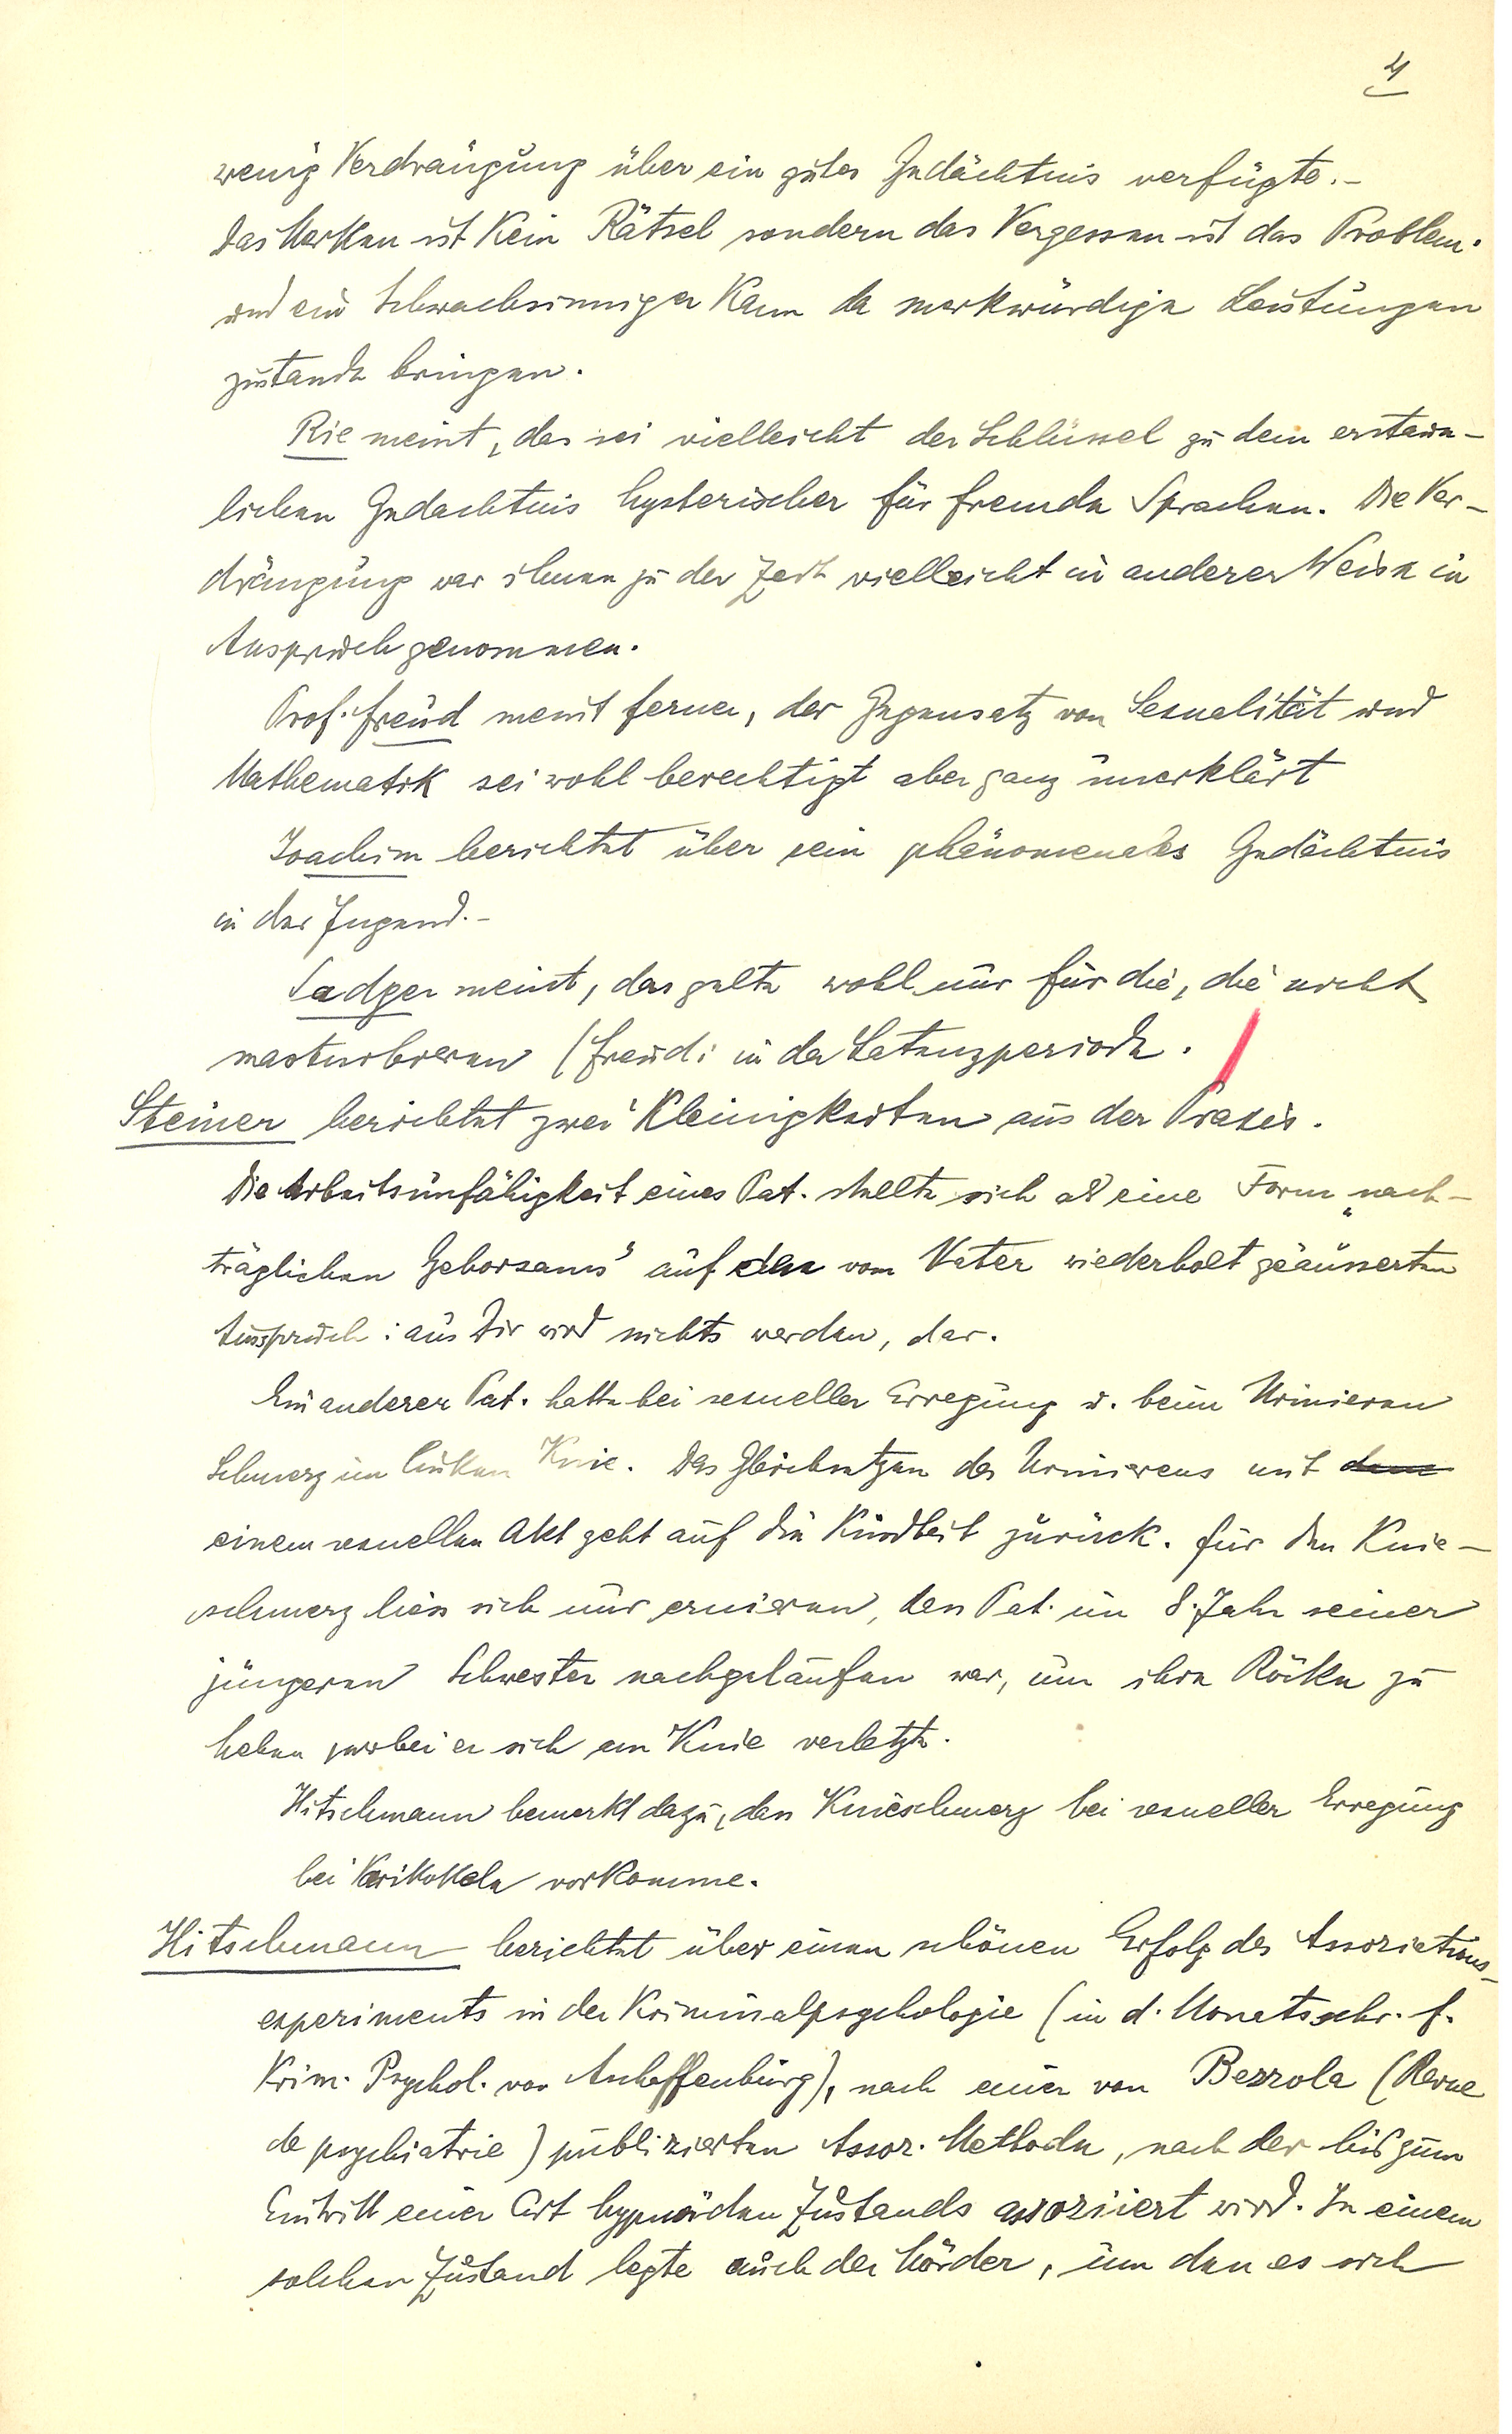 4
wenig Verdrängung über ein gutes Gedächtnis verfügte.-
Das Merken ist kein Rätsel sondern das Vergessen ist das Problem.
und ein Schwachsinniger kann da merkwürdige Leistungen
zustande bringen.
Rie meint, das sei vielleicht der Schlüssel zu dem erstaun-
lichen Gedächtnis hysterischer für fremde Sprachen. Die Ver-
drängung war ihnen zu der Zeit vielleicht in anderer Weise in
Anspruch genommen.
Prof. Freud meint ferner, der Gegensatz von Sexualität und
Mathematik sei wohl berechtigt aber ganz unerklärt
Joachim berichtet über sein phänomenales Gedächtnis
in der Jugend.-
Sadger meint, das gelte wohl nur für die, die nicht
masturbieren (Freud: in der Latenzperiode.
Steiner berichtet zwei Kleinigkeiten aus der Praxis.
Die Arbeitsunfähigkeit eines Pat. stellte sich als eine Form „nach-
träglichen Gehorsams" auf den vom Vater wiederholt geäusserten
Ausspruch: aus Dir wird nichts werden, dar.
Ein anderer Pat. hatte bei sexueller Erregung u. beim Urinieren
Schmerz im linken Knie. Das Gleichsetzen des Urinierens mit dem
einem sexuellen Akt geht auf die Kindheit zurück. Für den Knie-
schmerz liess sich nur eruieren, dass Pat. im 8. Jahr seiner
jüngeren Schwester nachgelaufen war, um ihre Röcke zu
heben, wobei er sich am Knie verletzte.
Hitschmann bemerkt dazu, dass Knieschmerz bei sexueller Erregung
bei Varikokele vorkomme.
Hitschmann berichtet über einen schönen Erfolg des Assoziations-
experiments in der Kriminalpsychologie (in d. Monatsschr. f.
Krim. Psychol. von Aschaffenburg), nach einer von Bezzola (Revue
de psychiatrie) publizierten Assoz. Methode, nach der bis zum
Eintritt einer Art hypnoiden Zustands assoziiert wird. In einem
solchen Zustand legte auch der Mörder, um den es sich